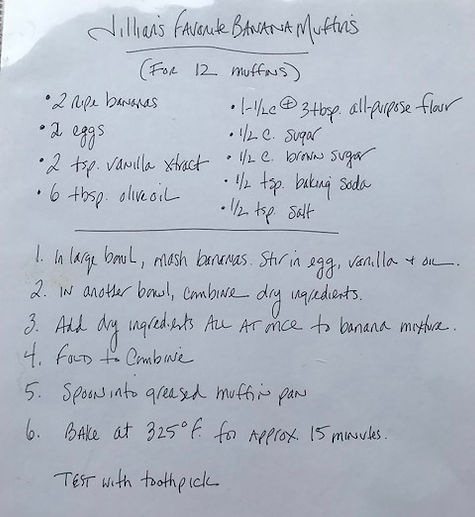 Jillian's Favorite Banana Muffins
(For 12 muffins)
• 2 ripe bananas
• 2 eggs
• 2 tsp. vanilla xtract
• 6 tbsp. olive oil
• 1-1/2 c ⊕ 3 tbsp. all-purpose flour
• 1/2 c. sugar
• 1/2 c. brown sugar
• 1/2 tsp. baking soda
• 1/2 tsp. salt
1. In large bowl, mash bananas. Stir in egg, vanilla + oil.
2. In another bowl, combine dry ingredients.
3. Add dry ingredients ALL AT once to banana mixture.
4. Fold to Combine
5. Spoon into greased muffin pan
6. Bake at 325°F. for approx. 15 minutes.
TEST with toothpick